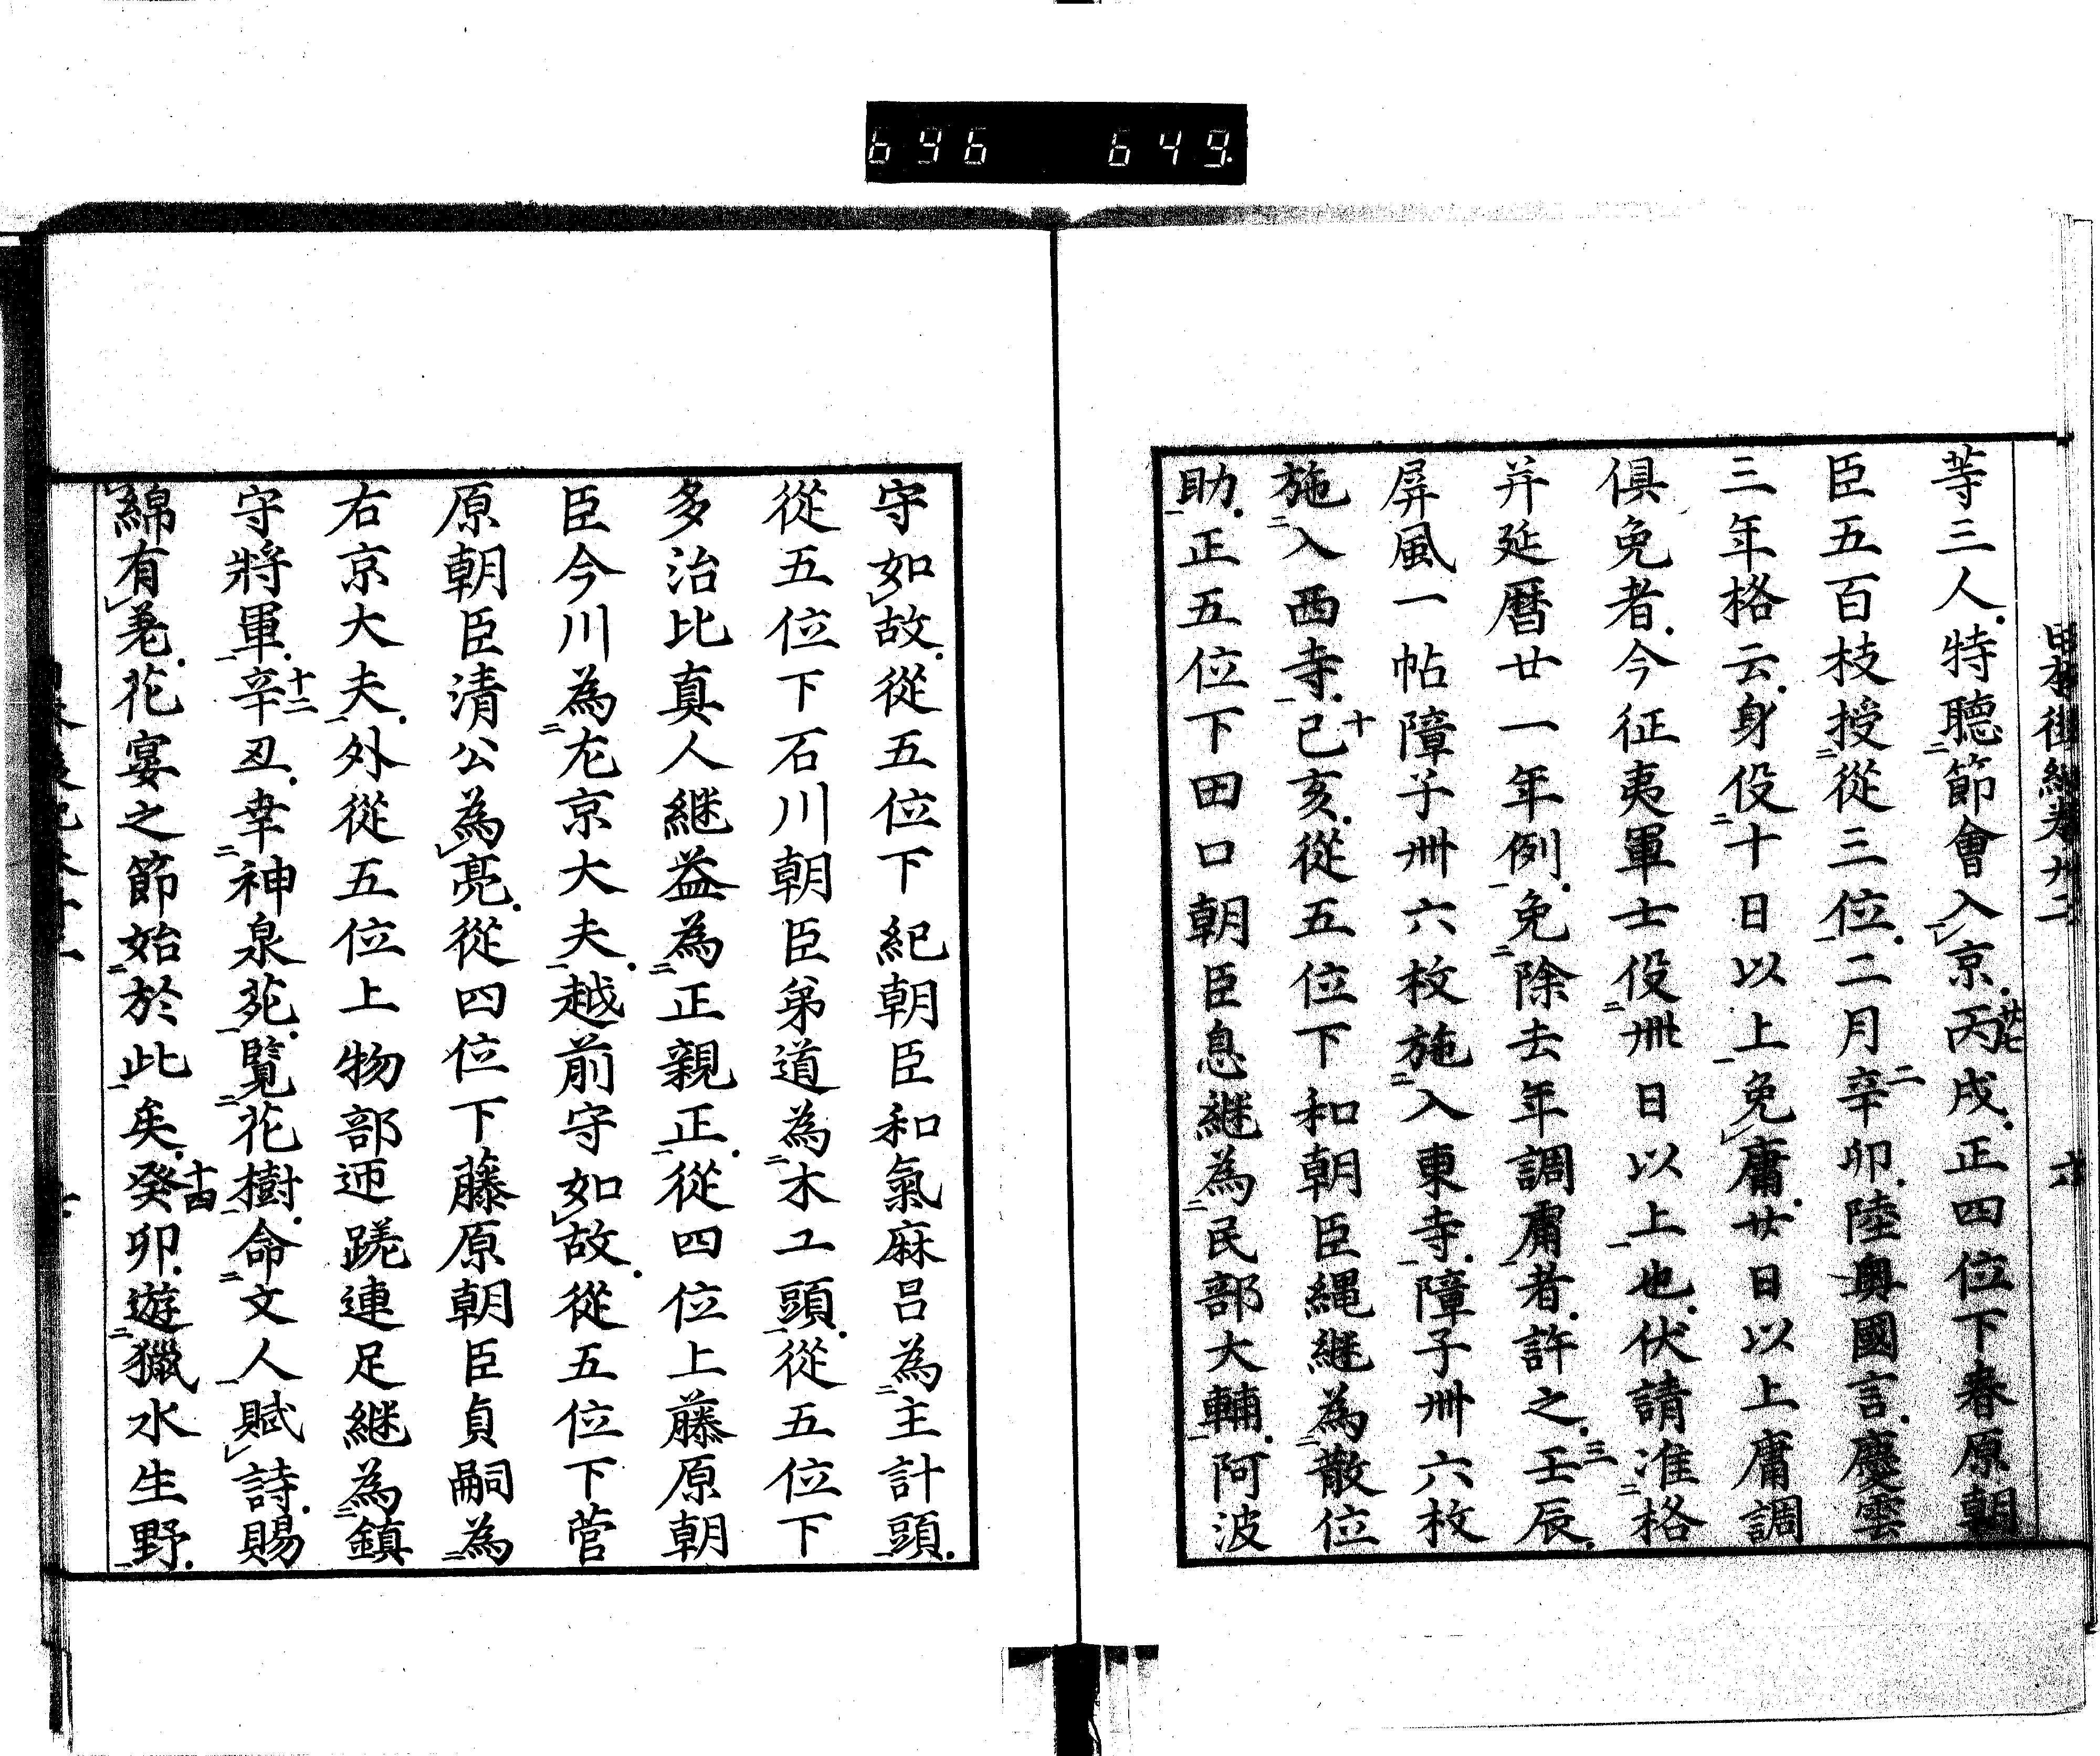 696 649
日本後紀卷廿二 六
等三人特聽節會入京丙戌正四位下春原朝
臣五百枝授從三位二月辛卯陸奧國言慶雲
三年格云身役十日以上免庸廿日以上庸調
俱免者今征夷軍士役卅日以上也伏請准格
并延曆廿一年例免除去年調庸者許之壬辰
屏風一帖障子卌六枚施入東寺障子卌六枚
施入西寺己亥從五位下和朝臣縄継為散位
助正五位下田口朝臣息継為民部大輔阿波
守如故從五位下紀朝臣和氣麻呂為主計頭
從五位下石川朝臣弟道為木工頭從五位下
多治比真人継益為正親正從四位上藤原朝
臣今川為左京大夫越前守如故從五位下菅
原朝臣清公為亮從四位下藤原朝臣貞嗣為
右京大夫外從五位上物部匝蹉連足継為鎮
守將軍辛丑幸神泉苑覽花樹命文人賦詩賜
綿有差花宴之節始於此矣癸卯遊獵水生野